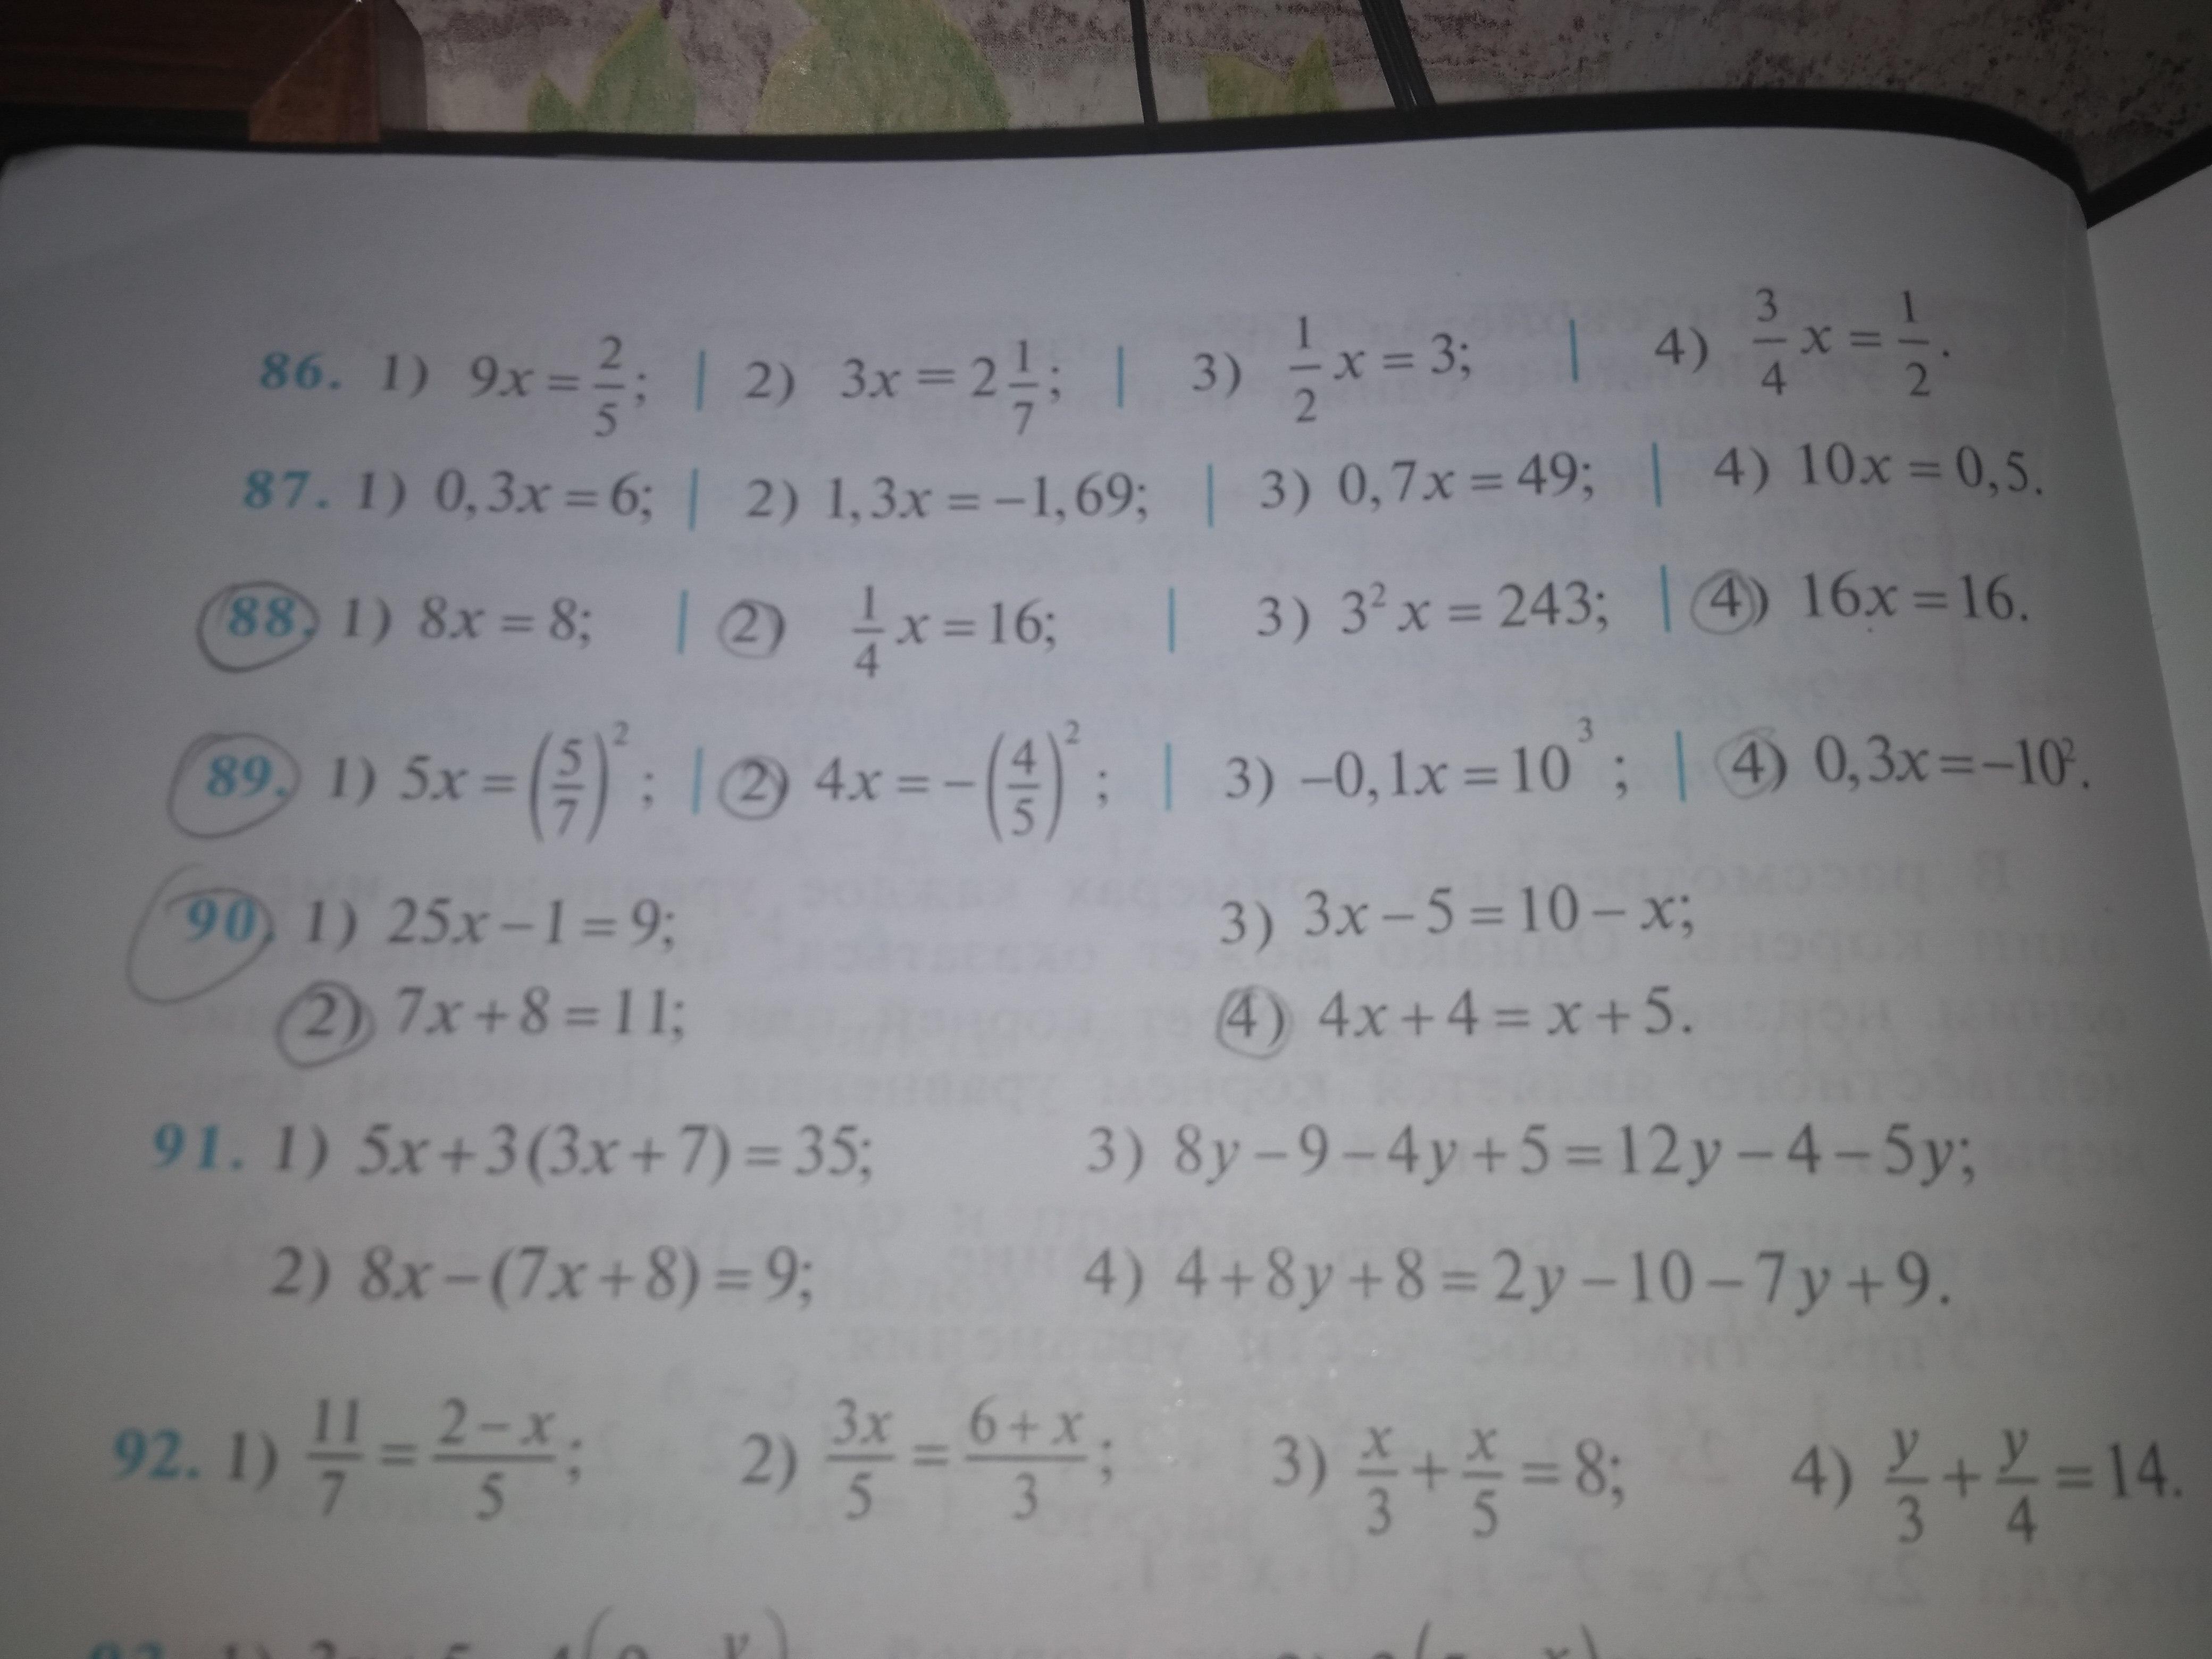 86. 1) 9x = 2/5; | 2) 3x = 2 1/7; | 3) 1/2 x = 3; | 4) 3/4 x = 1/2.
87. 1) 0,3x = 6; | 2) 1,3x = −1,69; | 3) 0,7x = 49; | 4) 10x = 0,5.
88. 1) 8x = 8; | 2) 1/4 x = 16; | 3) 3² x = 243; | 4) 16x = 16.
89. 1) 5x = (5/7)²; | 2) 4x = −(4/5)²; | 3) −0,1x = 10³; | 4) 0,3x = −10².
90. 1) 25x − 1 = 9; 3) 3x − 5 = 10 − x;
2) 7x + 8 = 11; 4) 4x + 4 = x + 5.
91. 1) 5x + 3(3x + 7) = 35; 3) 8y − 9 − 4y + 5 = 12y − 4 − 5y;
2) 8x − (7x + 8) = 9; 4) 4 + 8y + 8 = 2y − 10 − 7y + 9.
92. 1) 11/7 = (2 − x)/5; 2) 3x/5 = (6 + x)/3; 3) x/3 + x/5 = 8; 4) y/3 + y/4 = 14.